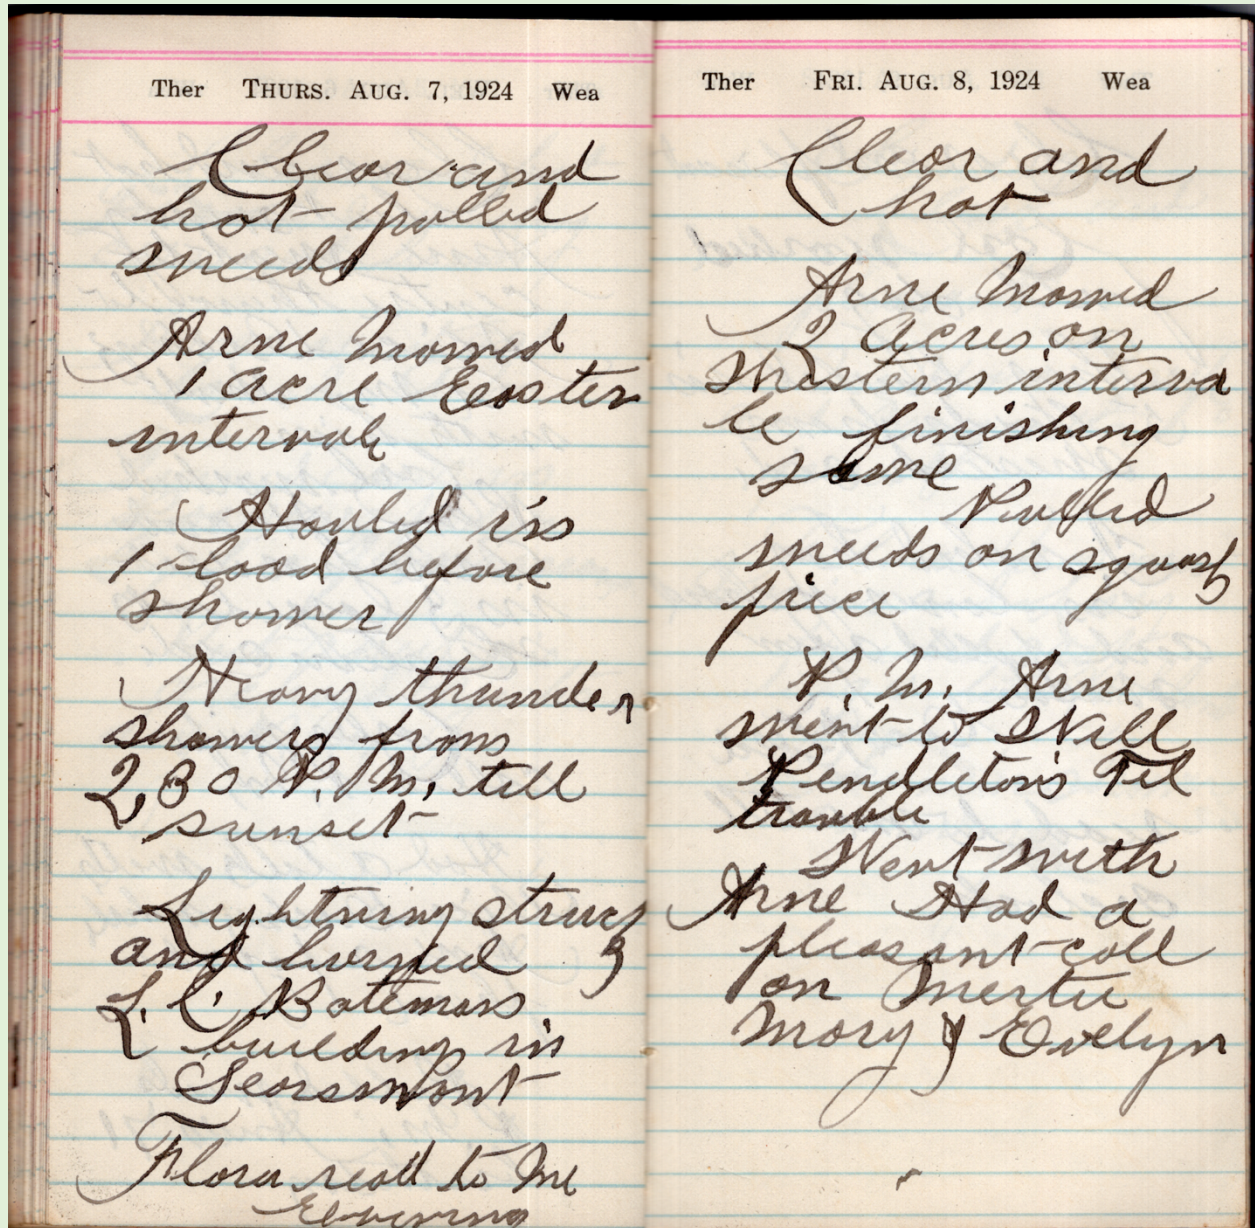 Ther THURS. AUG. 7, 1924 Wea
Clear and
hot pulled
weeds
Arne Mowed
1 acre Easter
intervale
Hauled in
1 load before
shower
Heavy thunder
showers from
2,30 P. M. till
sunset
Lightning struck
and burned
L. C. Batemans
buildings in
Searsmont
Flora read to Me
evening
Ther FRI. AUG. 8, 1924 Wea
Clear and
hot
Arne Mowed
2 acres on
Western interva
le finishing
same
Pulled
weeds on squash
piece
P. M. Arne
went to Will
Pendleton's Tel
trouble
Went with
Arne Had a
pleasant call
on Mertie
Mary & Evelyn